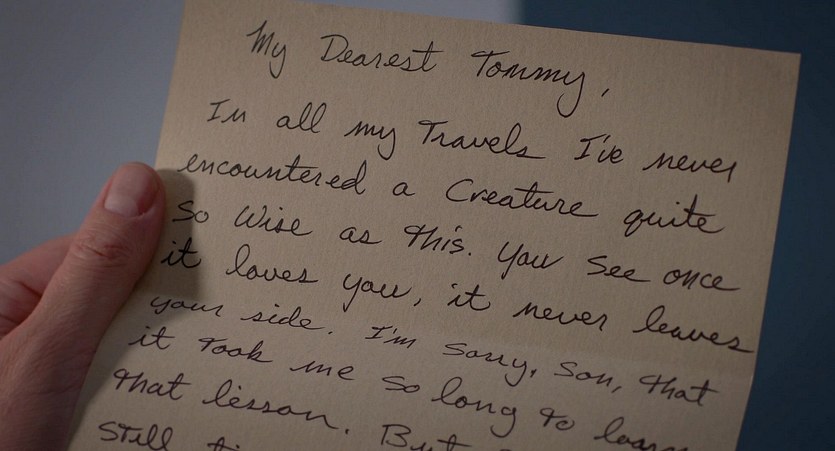 My Dearest Tommy,
In all my Travels I've never
encountered a Creature quite
so Wise as this. You see once
it loves you, it never leaves
your side. I'm sorry, son, that
it took me so long to learn
that lesson. But
still